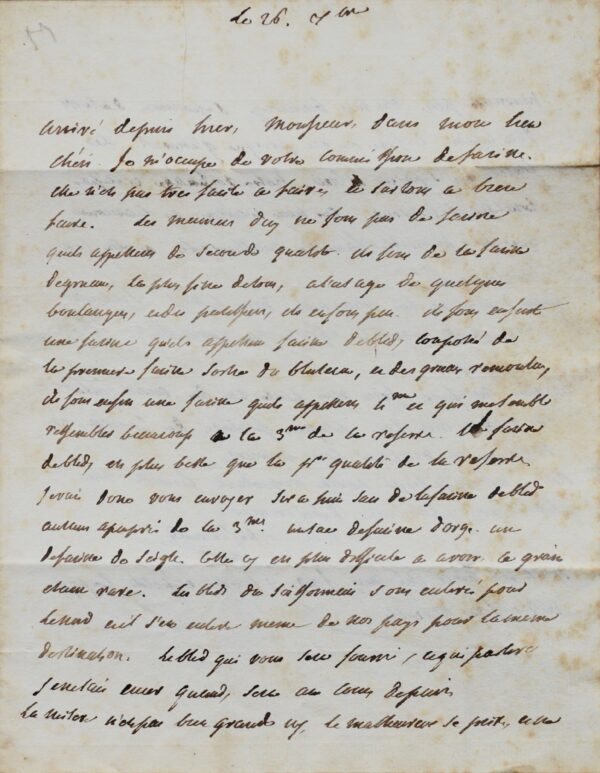 Le 26. 7bre
arrivé depuis hier, Monsieur, dans mon lieu
chéri. Je m'occupe de votre commission de farine.
elle n'est pas tres facile a faire, et surtout a bien
faire. Les meuniers d'icy ne font pas de farine
quils appellent de seconde qualité. ils font de la farine
de gruau, la plus fine de tout, a l'usage de quelques
boulangers, et des patissiers, ils en font peu. ils font ensuite
une farine quils appellent farine de bled, composée de
la premiere farine sortie du bluteau, et des gruaux remoulus,
ils font enfin une farine quils appellent 4me et qui me semble
ressembler beaucoup a la 3me de la reserve. La farine
de bled, est plus belle que la pre qualité de la reserve
Je vais donc vous envoyer six a huit sacs de la farine de bled
autant a peu près de la 3me. un sac de farine d'orge. un
de farine de seigle. Celle cy est plus difficile a avoir. ce grain
etant rare. Les bleds du Soissonnais sont enlevés pour
le nord et il s'en enleve meme de nos pays pour la meme
destination. Le bled qui vous sera fourni,
sera au cours depuis
La misere n'est pas bien grande icy, le malheureux se